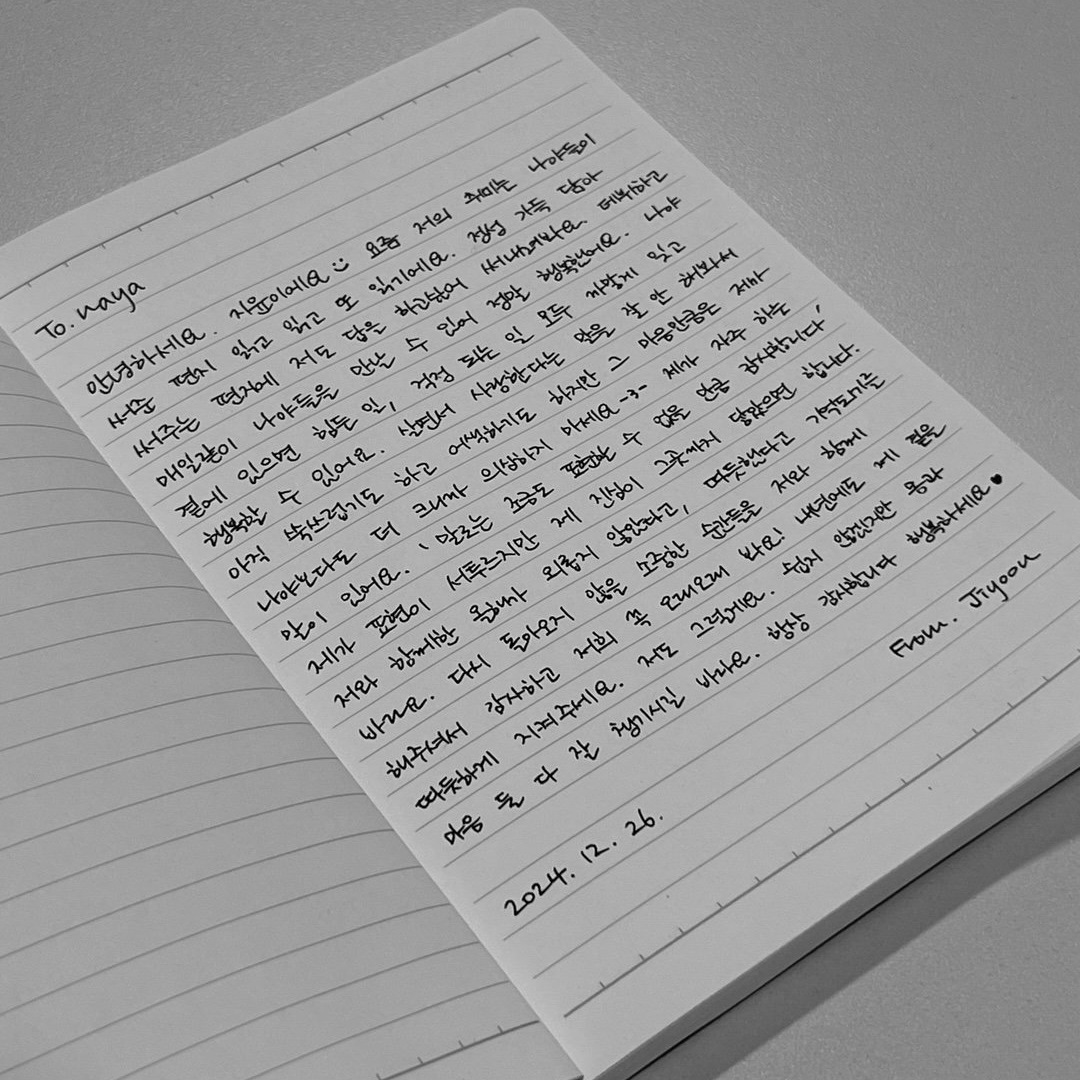 To. naya
안녕하세요. 지윤이에요 :) 요즘 저의 취미는 나야들이
써준 편지 읽고 읽고 또 읽기에요. 정성 가득 담아
써주는 편지에 저도 답을 하고싶어 써내려봐요. 데뷔하고
매일같이 나야들을 만날 수 있어 정말 행복했어요. 나야
곁에 있으면 힘든 일, 걱정 되는 일 모두 까맣게 잊고
행복할 수 있어요. 살면서 사랑한다는 말을 잘 안 해봐서
아직 쑥쓰럽기도 하고 어색하기도 하지만 그 마음만큼은 제가
나야보다도 더 크니까 의심하지 마세요-3- 제가 자주 하는
말이 있어요. '말로는 조금도 표현할 수 없을 만큼 감사합니다'
제가 표현이 서투르지만 제 진심이 그곳까지 닿았으면 합니다.
저와 함께한 올해가 외롭지 않았다고, 따듯했다고 기억되기를
바래요. 다시 돌아오지 않을 소중한 순간들을 저와 함께
해주셔서 감사하고 저희 쭉 오래오래 봐요! 내년에도 제 곁을
따듯하게 지켜주세요. 저도 그럴게요. 쉽지 않겠지만 몸과
마음 둘 다 잘 챙기시길 바라요. 항상 감사합니다 행복하세요♥
From. Jiyoon
2024. 12. 26.